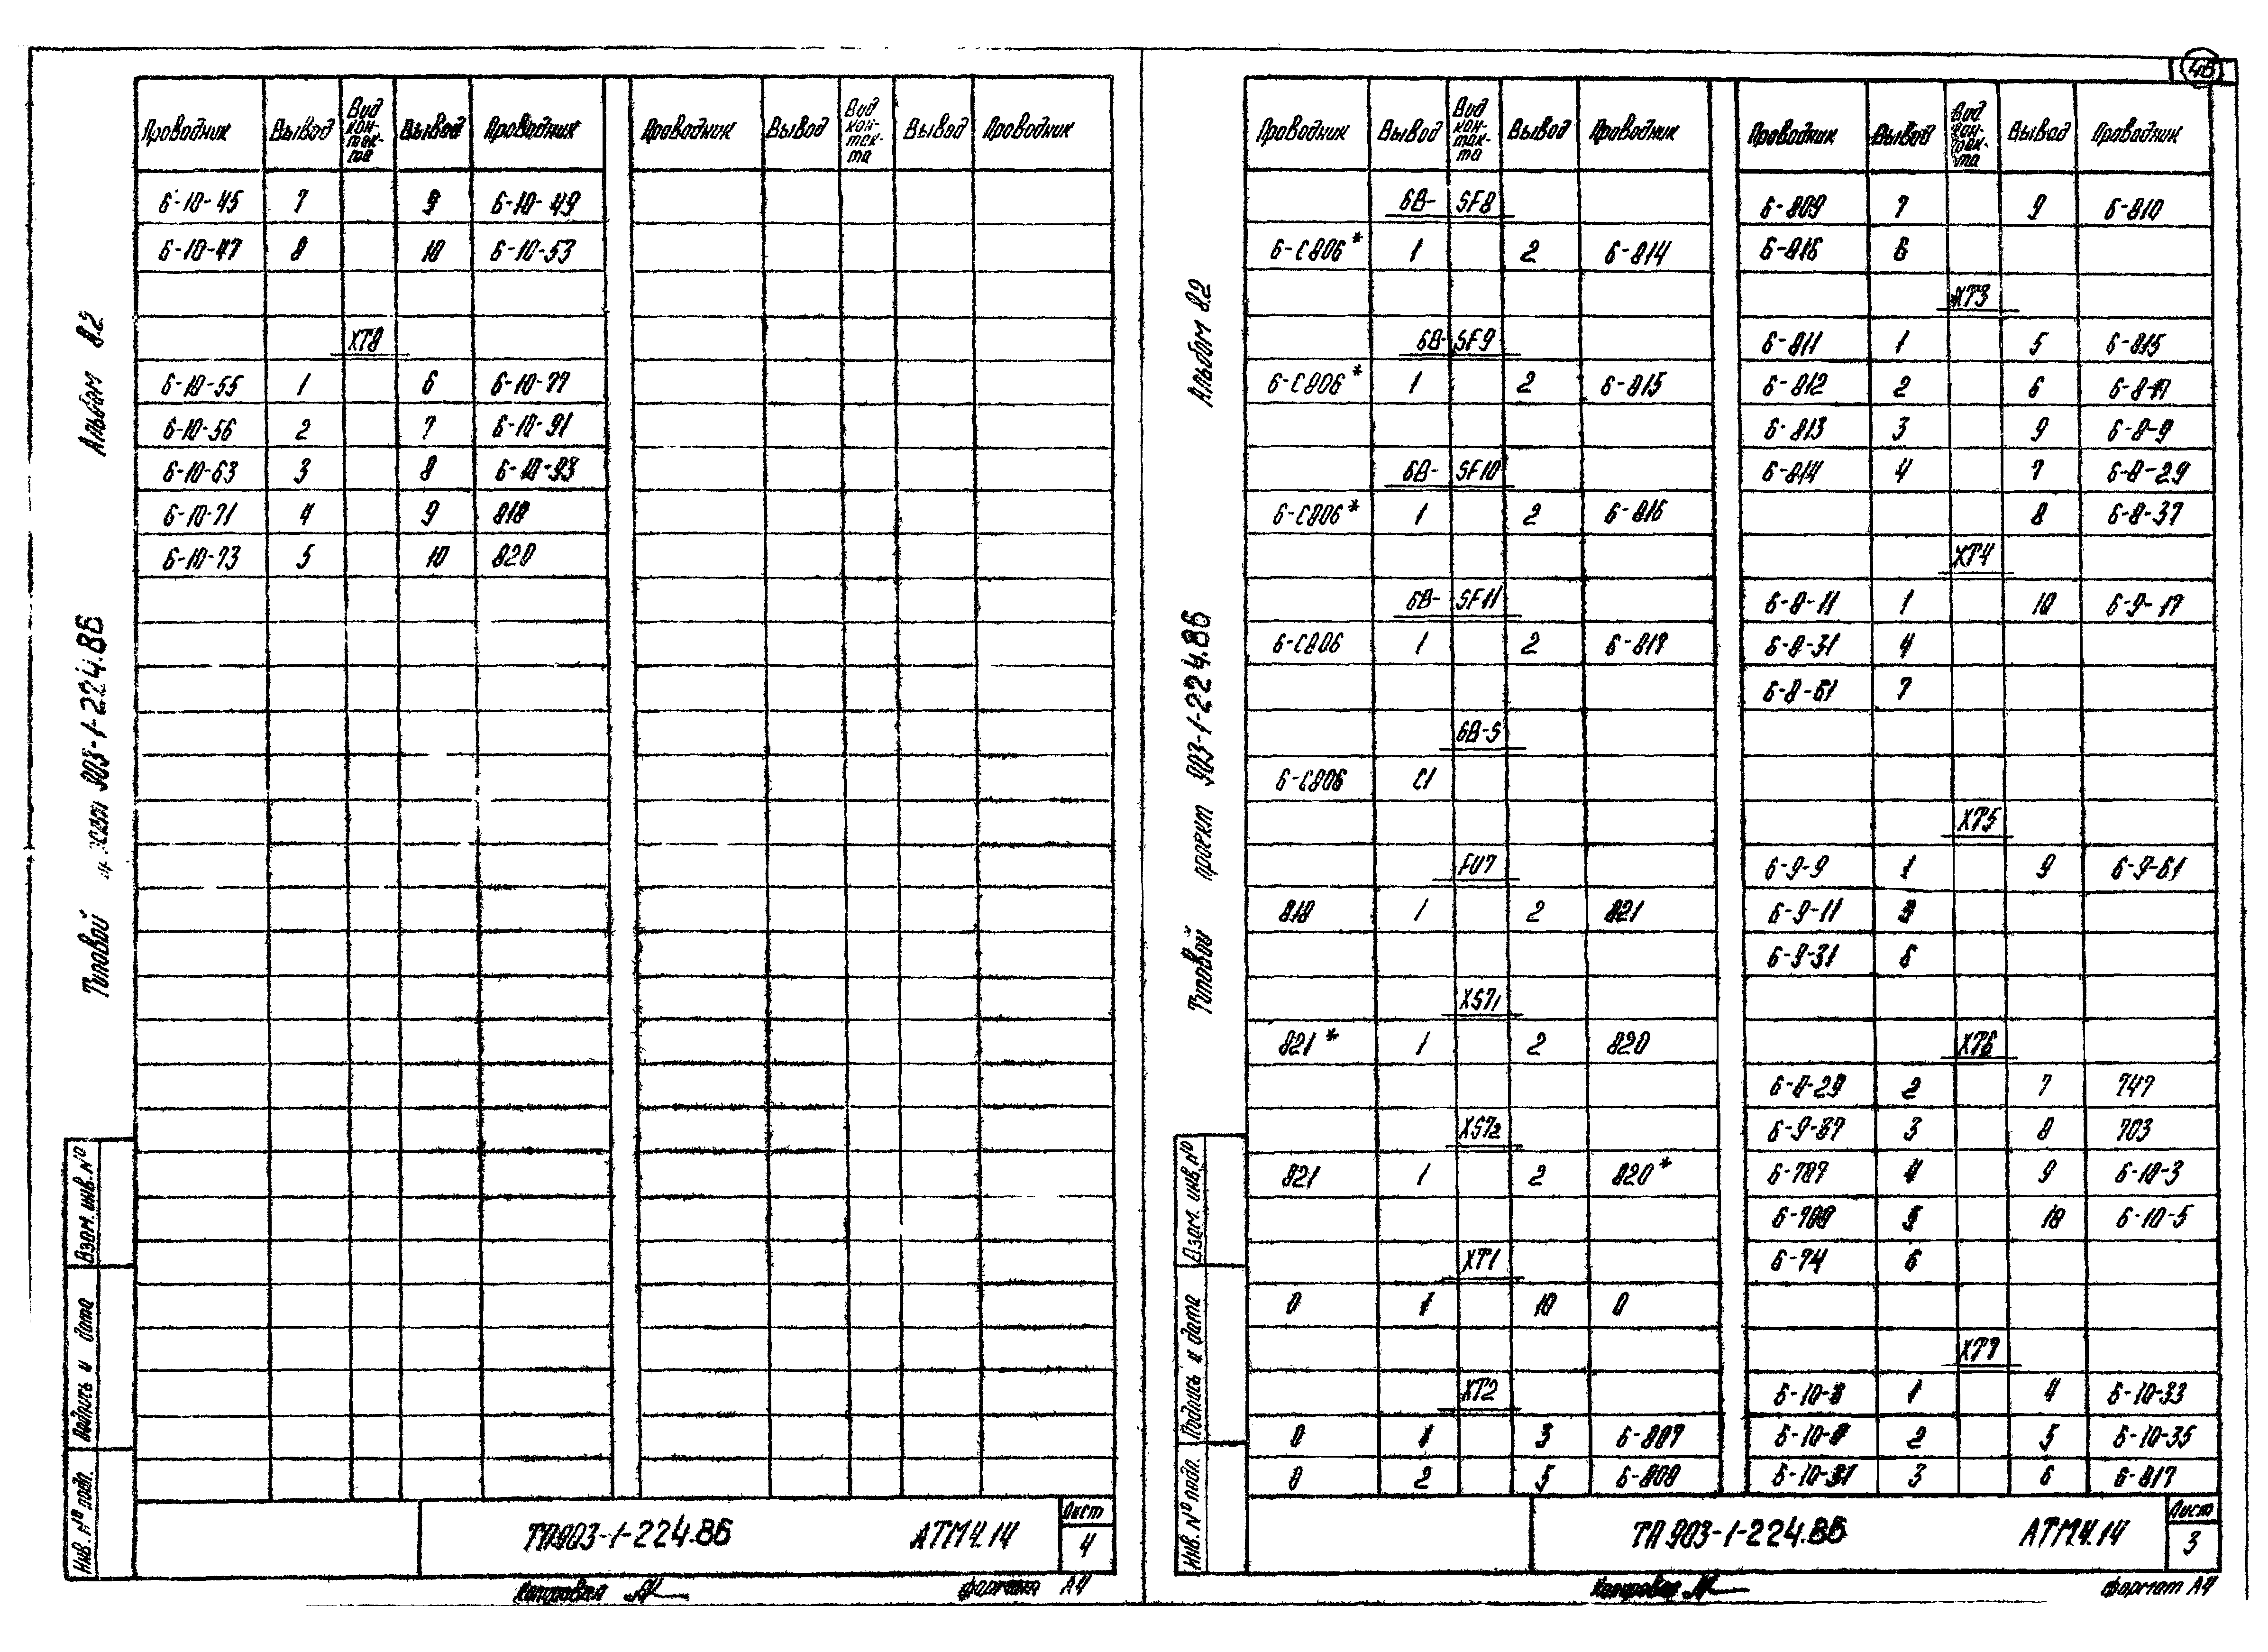 45
Проводник Вывод Вид кон-так-та Вывод Проводник Проводник Вывод Вид кон-так-та Вывод Проводник
6-10-45 7 9 6-10-49
6-10-47 8 10 6-10-53
XT8
6-10-55 1 6 6-10-77
6-10-56 2 7 6-10-91
6-10-63 3 8 6-10-93
6-10-71 4 9 818
6-10-73 5 10 820
Альбом 8.2
Типовой 903-1-224.86
Взам. инв. №
Подпись и дата
Инв. № подл.
ТП903-1-224.86 АТМ4.14 Лист 4
Копировал Формат А4
Проводник Вывод Вид кон-так-та Вывод Проводник
6В-SF8
6-C806* 1 2 6-814
6В-SF9
6-C806* 1 2 6-815
6В-SF10
6-C806* 1 2 6-816
6В-SF11
6-C806 1 2 6-817
6В-S
6-C806 C1
FU7
818 1 2 821
XS71
821* 1 2 820
XS72
821 1 2 820*
XT1
0 1 10 0
XT2
0 1 3 6-807
0 2 5 6-808
Проводник Вывод Вид кон-так-та Вывод Проводник
6-809 7 9 6-810
6-816 6
XT3
6-811 1 5 6-815
6-812 2 6
6-813 3 9 6-8-9
6-814 4 7 6-8-29
8 6-8-37
XT4
6-8-11 1 10 6-9-17
6-8-31 4
6-8-61 7
XT5
6-9-9 1 9 6-9-61
6-9-11
6-9-31 6
XT6
6-8-29 2 7 747
6-9-37 3 8 703
6-707 4 9 6-10-3
5 10 6-10-5
6-74 6
XT7
1 4 6-10-33
2 5 6-10-35
6-10-31 3 6 6-817
Альбом 8.2
Типовой проект 903-1-224.86
Взам. инв. №
Подпись и дата
Инв. № подл.
ТП 903-1-224.86 АТМ4.14 Лист 3
Копировал Формат А4